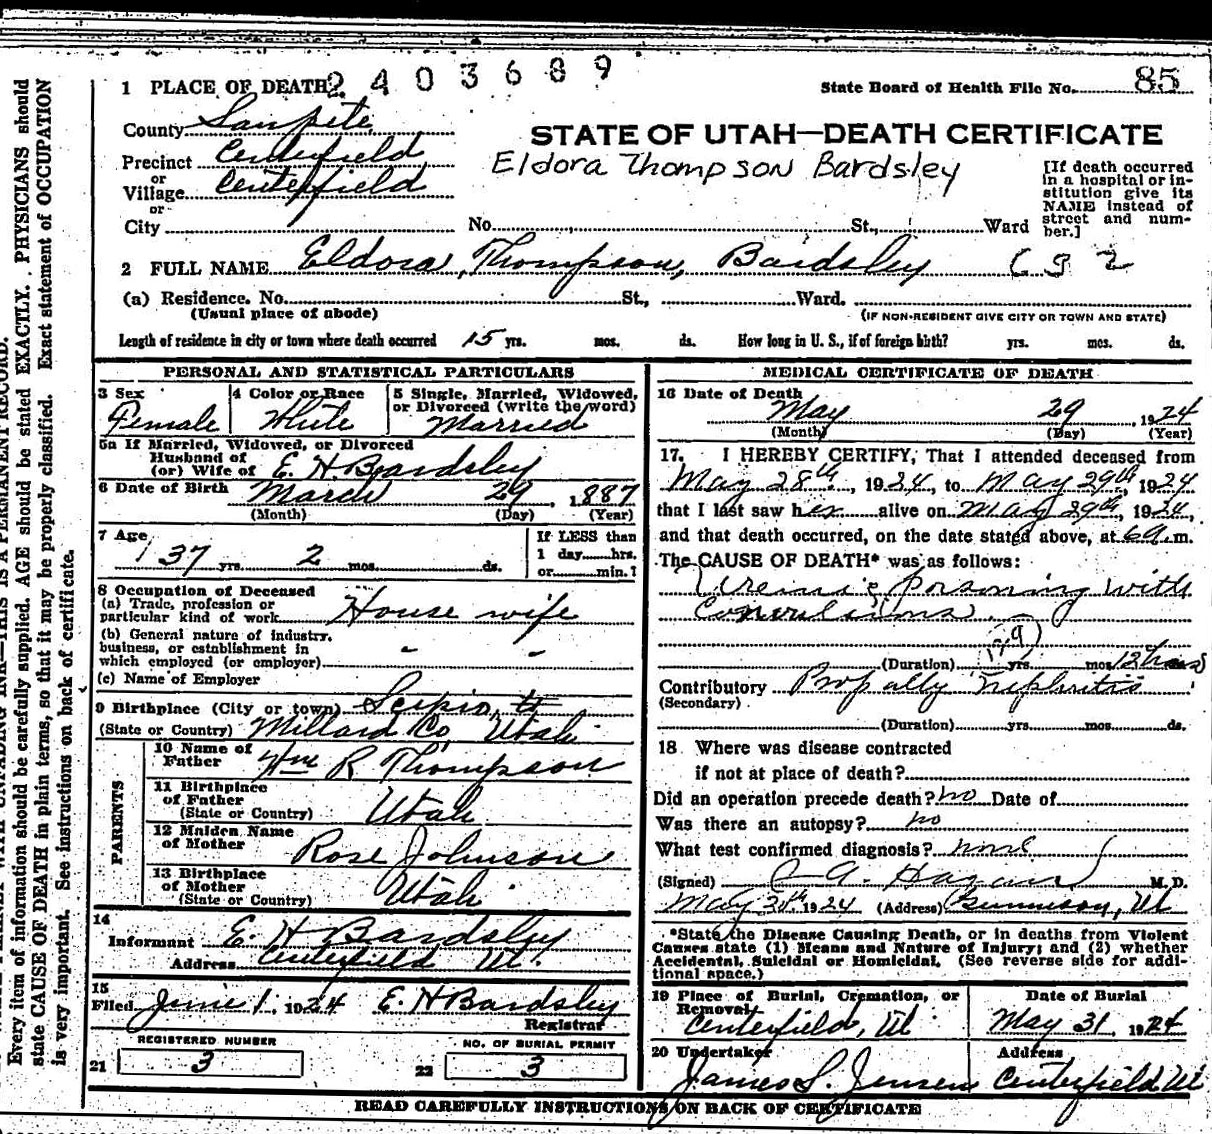 2403689
1 PLACE OF DEATH
State Board of Health File No. 85
County Sanpete
STATE OF UTAH—DEATH CERTIFICATE
Precinct Centerfield
Eldora Thompson Bardsley
or
Village Centerfield
or
City
No. St., Ward
[If death occurred in a hospital or institution give its NAME instead of street and number.]
2 FULL NAME Eldora, Thompson, Bardsley
(a) Residence. No. St., Ward.
(Usual place of abode)
(IF NON-RESIDENT GIVE CITY OR TOWN AND STATE)
Length of residence in city or town where death occurred 15 yrs. mos. ds. How long in U. S., if of foreign birth? yrs. mos. ds.
PERSONAL AND STATISTICAL PARTICULARS
3 Sex
Female
4 Color or Race
White
5 Single, Married, Widowed,
or Divorced (write the word)
Married
5a If Married, Widowed, or Divorced
Husband of
(or) Wife of E. H Bardsley
6 Date of Birth March 29, 1887
(Month) (Day) (Year)
7 Age
37 yrs. 2 mos. ds.
If LESS than
1 day hrs.
or min.?
8 Occupation of Deceased
(a) Trade, profession or
particular kind of work House wife
(b) General nature of industry,
business, or establishment in
which employed (or employer) - -
(c) Name of Employer
9 Birthplace (City or town) Scipio,
(State or Country) Millard Co Utah
PARENTS
10 Name of
Father Wm R Thompson
11 Birthplace
of Father
(State or Country) Utah
12 Maiden Name
of Mother Rose Johnson
13 Birthplace
of Mother
(State or Country) Utah
14
Informant E. H Bardsley
Address Centerfield Ut.
15
Filed June 1 1924 E. H Bardsley
Registrar
REGISTERED NUMBER
21 3
NO. OF BURIAL PERMIT
22 3
MEDICAL CERTIFICATE OF DEATH
16 Date of Death
May 29, 1924
(Month) (Day) (Year)
17. I HEREBY CERTIFY, That I attended deceased from
May 28th, 1924, to May 29th, 1924
that I last saw her alive on May 29th, 1924,
and that death occurred, on the date stated above, at 6 a. m.
The CAUSE OF DEATH* was as follows:
Uremic poisoning with
Convulsions
(Duration) yrs. mos. 12 hours
129
Contributory Propally Nephritis
(Secondary)
(Duration) yrs. mos. ds.
18 Where was disease contracted
if not at place of death?
Did an operation precede death? no Date of
Was there an autopsy? no
What test confirmed diagnosis? none
(Signed) A. Hagan M. D.
May 30th 1924 (Address) Gunnison, Ut
*State the Disease Causing Death, or in deaths from Violent
Causes state (1) Means and Nature of Injury; and (2) whether
Accidental, Suicidal or Homicidal. (See reverse side for addi-
tional space.)
19 Place of Burial, Cremation, or
Removal
Centerfield, Ut
Date of Burial
May 31 1924
20 Undertaker
James S. Jensen
Address
Centerfield Ut
READ CAREFULLY INSTRUCTIONS ON BACK OF CERTIFICATE
THIS IS A PERMANENT RECORD.
Every item of information should be carefully supplied. AGE should be stated EXACTLY. PHYSICIANS should
state CAUSE OF DEATH in plain terms, so that it may be properly classified. Exact statement of OCCUPATION
is very important. See instructions on back of certificate.